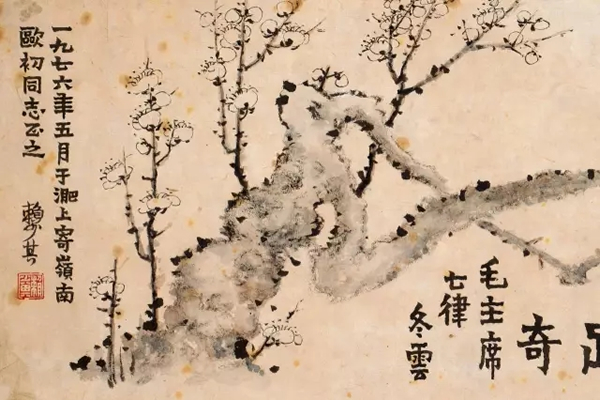 奇
毛主席
七律
冬雲
一九七六年五月于淝上寄嶺南
歐初同志正之
賴少其